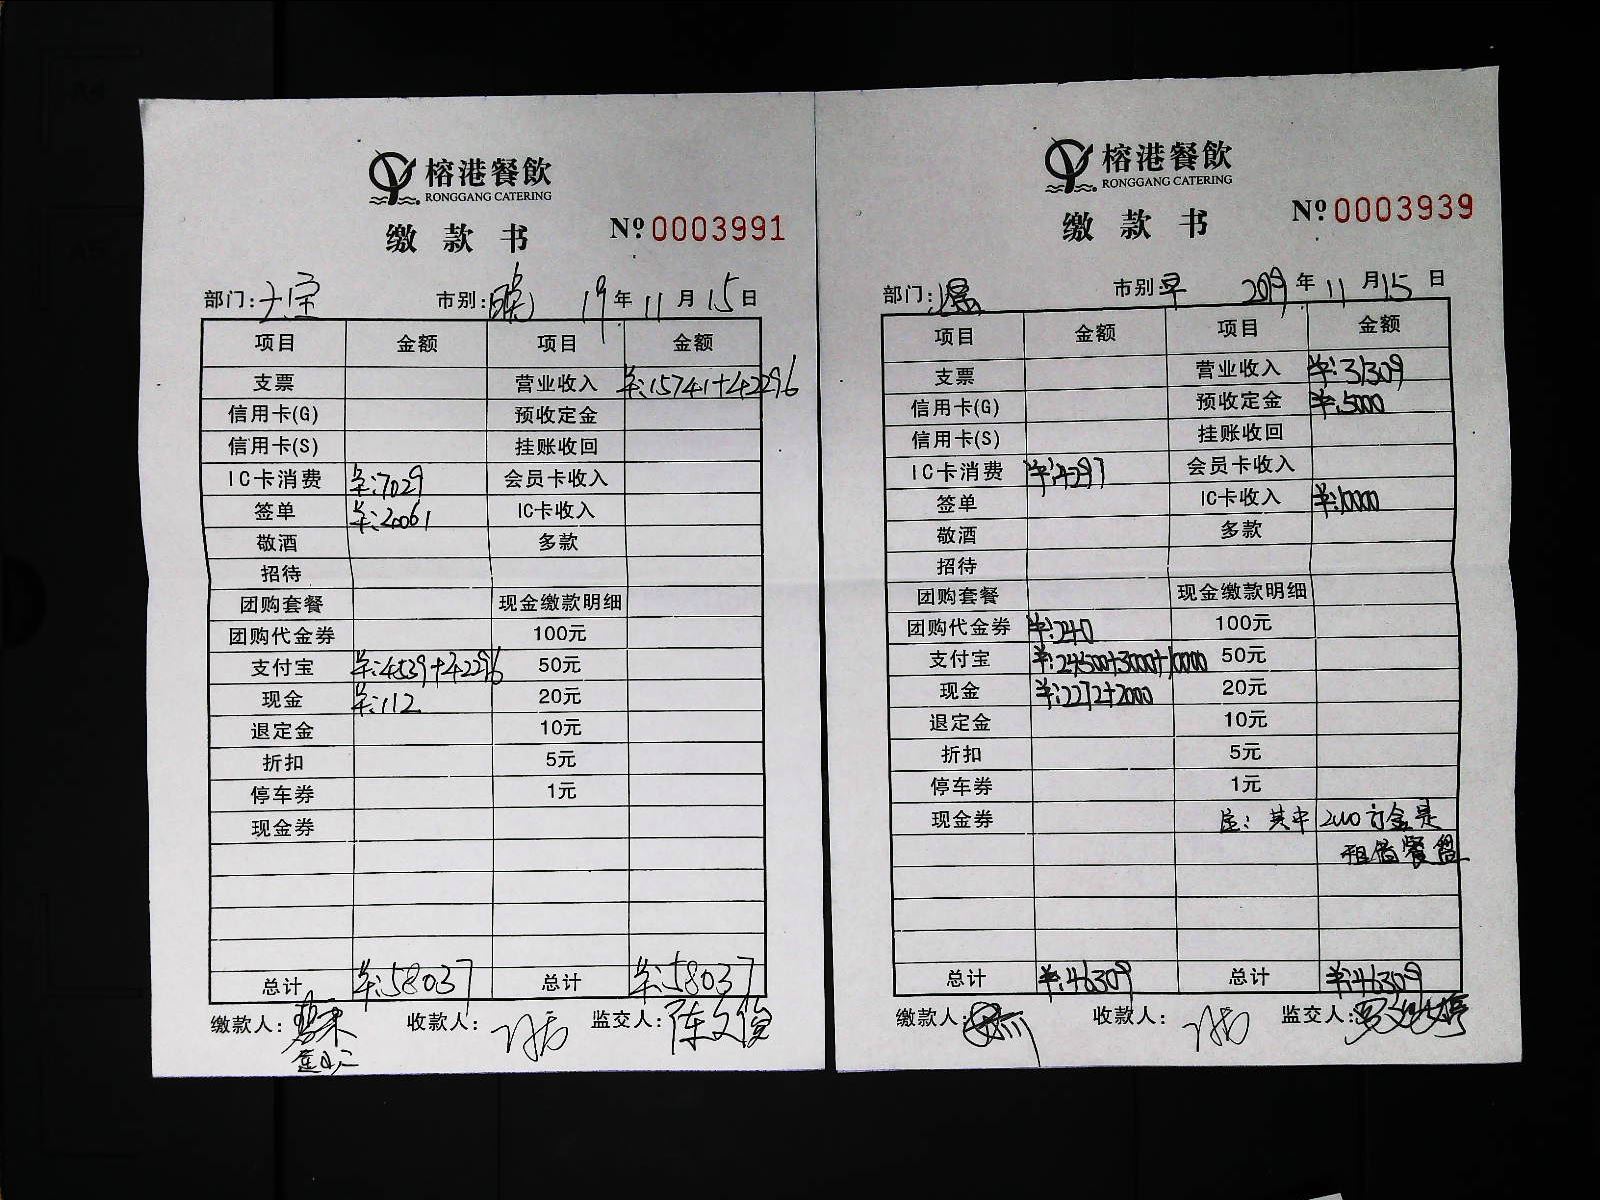 榕港餐飲
RONGGANG CATERING
缴款书
№ 0003991
部门: 市别: 19年11月15日
项目 金额 项目 金额
支票 营业收入 ¥:15741+42296
信用卡(G) 预收定金
信用卡(S) 挂账收回
IC卡消费 ¥:7029 会员卡收入
签单 ¥:20061 IC卡收入
敬酒 多款
招待
团购套餐 现金缴款明细
团购代金券 100元
支付宝 ¥:4539+42296 50元
现金 ¥:112 20元
退定金 10元
折扣 5元
停车券 1元
现金券
总计 ¥:58037 总计 ¥:58037
缴款人: 收款人: 监交人:陈文俊
榕港餐飲
RONGGANG CATERING
缴款书
№ 0003939
部门: 市别 早 2019年11月15日
项目 金额 项目 金额
支票 营业收入 ¥:31309
信用卡(G) 预收定金 ¥:5000
信用卡(S) 挂账收回
IC卡消费 ¥:4297 会员卡收入
签单 IC卡收入 ¥:10000
敬酒 多款
招待
团购套餐 现金缴款明细
团购代金券 ¥:240 100元
支付宝 ¥:24500+3000+10000 50元
现金 ¥:2272+2000 20元
退定金 10元
折扣 5元
停车券 1元
现金券 注:其中2000订金是
租借餐
总计 ¥:46309 总计 ¥:46309
缴款人: 收款人: 监交人: